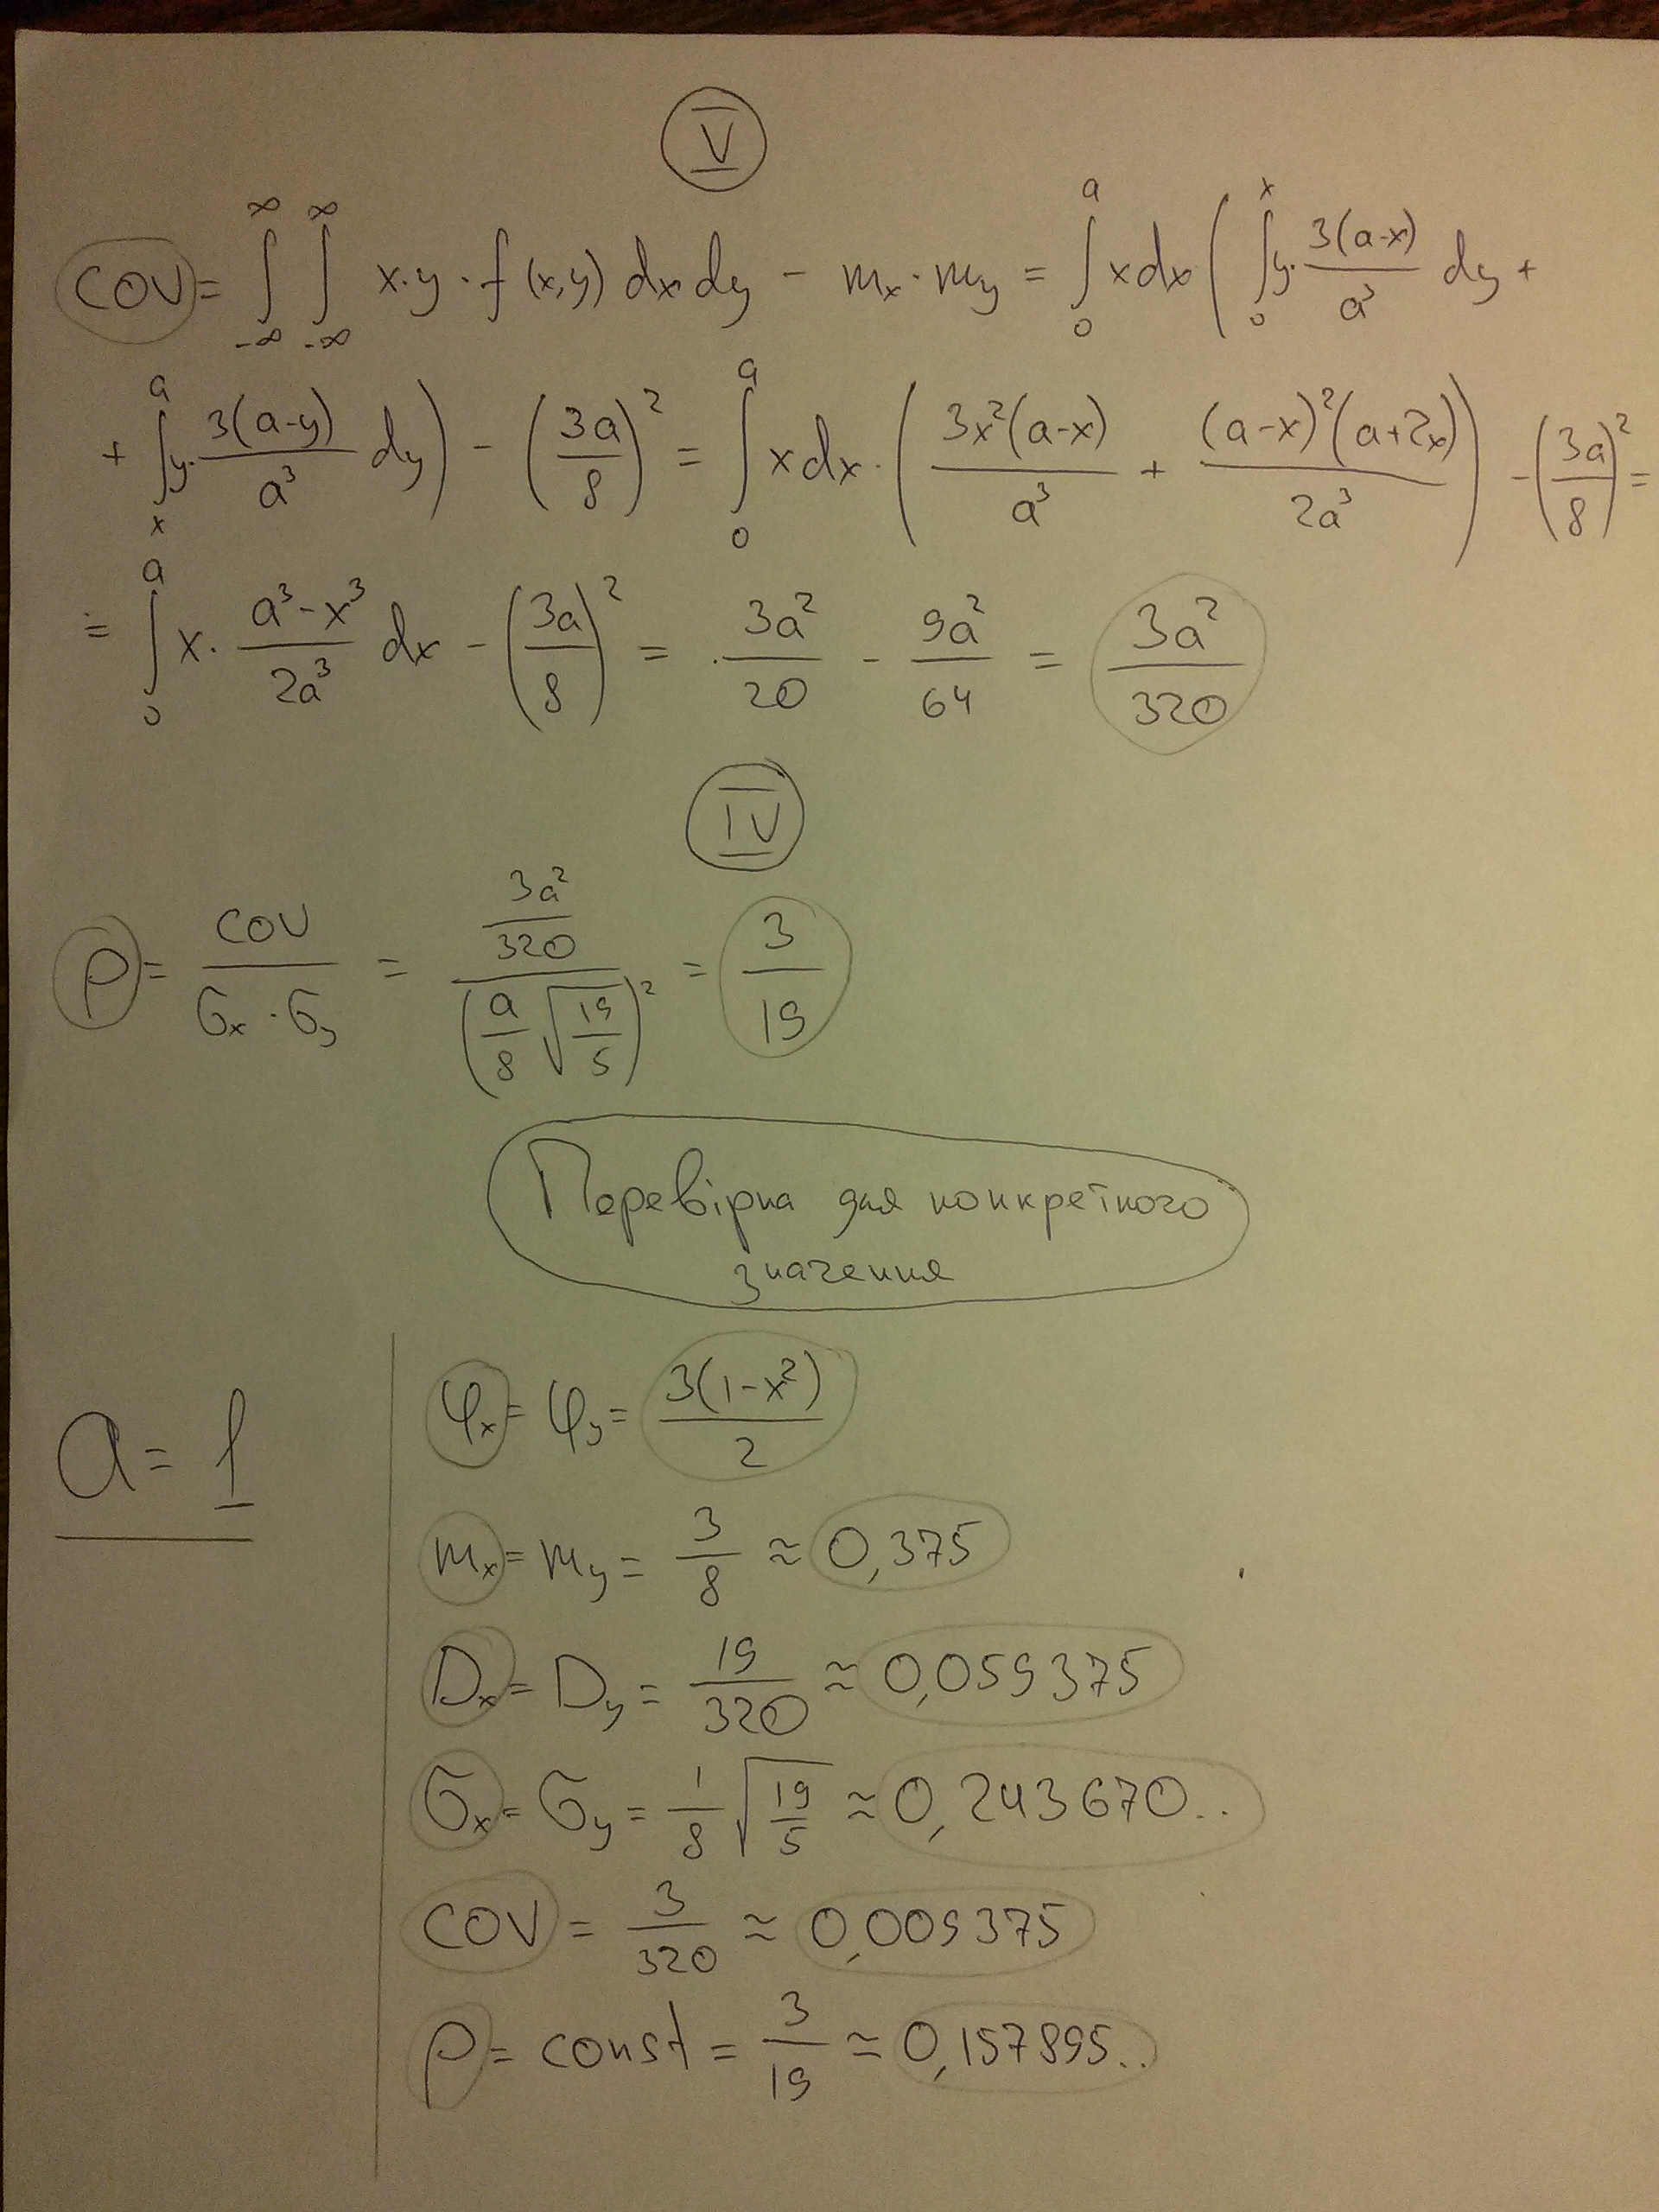 V
COV = ∫_{-∞}^{∞} ∫_{-∞}^{∞} x·y·f(x,y) dx dy - m_x · m_y = ∫_0^a x dx ( ∫_0^x y· 3(a-x)/a³ dy +
+ ∫_x^a y· 3(a-y)/a³ dy ) - (3a/8)² = ∫_0^a x dx · ( 3x²(a-x)/a³ + (a-x)²(a+2x)/2a³ ) - (3a/8)² =
= ∫_0^a x · (a³-x³)/2a³ dx - (3a/8)² = 3a²/20 - 9a²/64 = 3a²/320
IV
ρ = COV/(σ_x · σ_y) = (3a²/320)/(a/8 √(19/5))² = 3/19
Перевірка для конкретного
значення
a = 1
φ_x = φ_y = 3(1-x²)/2
m_x = m_y = 3/8 ≈ 0,375
D_x = D_y = 19/320 ≈ 0,059375
σ_x = σ_y = 1/8 √(19/5) ≈ 0,243670..
COV = 3/320 ≈ 0,009375
ρ = const = 3/19 ≈ 0,157895..